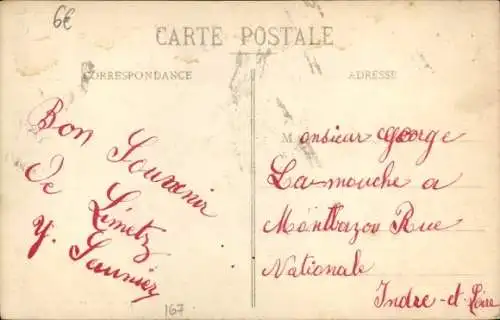 6€
CARTE POSTALE
CORRESPONDANCE
ADRESSE
Bon Souvenir
De Limetz
Y. Saunier
Monsieur George
Lamouche a
Montbazon Rue
Nationale
Indre-et-Loire
167